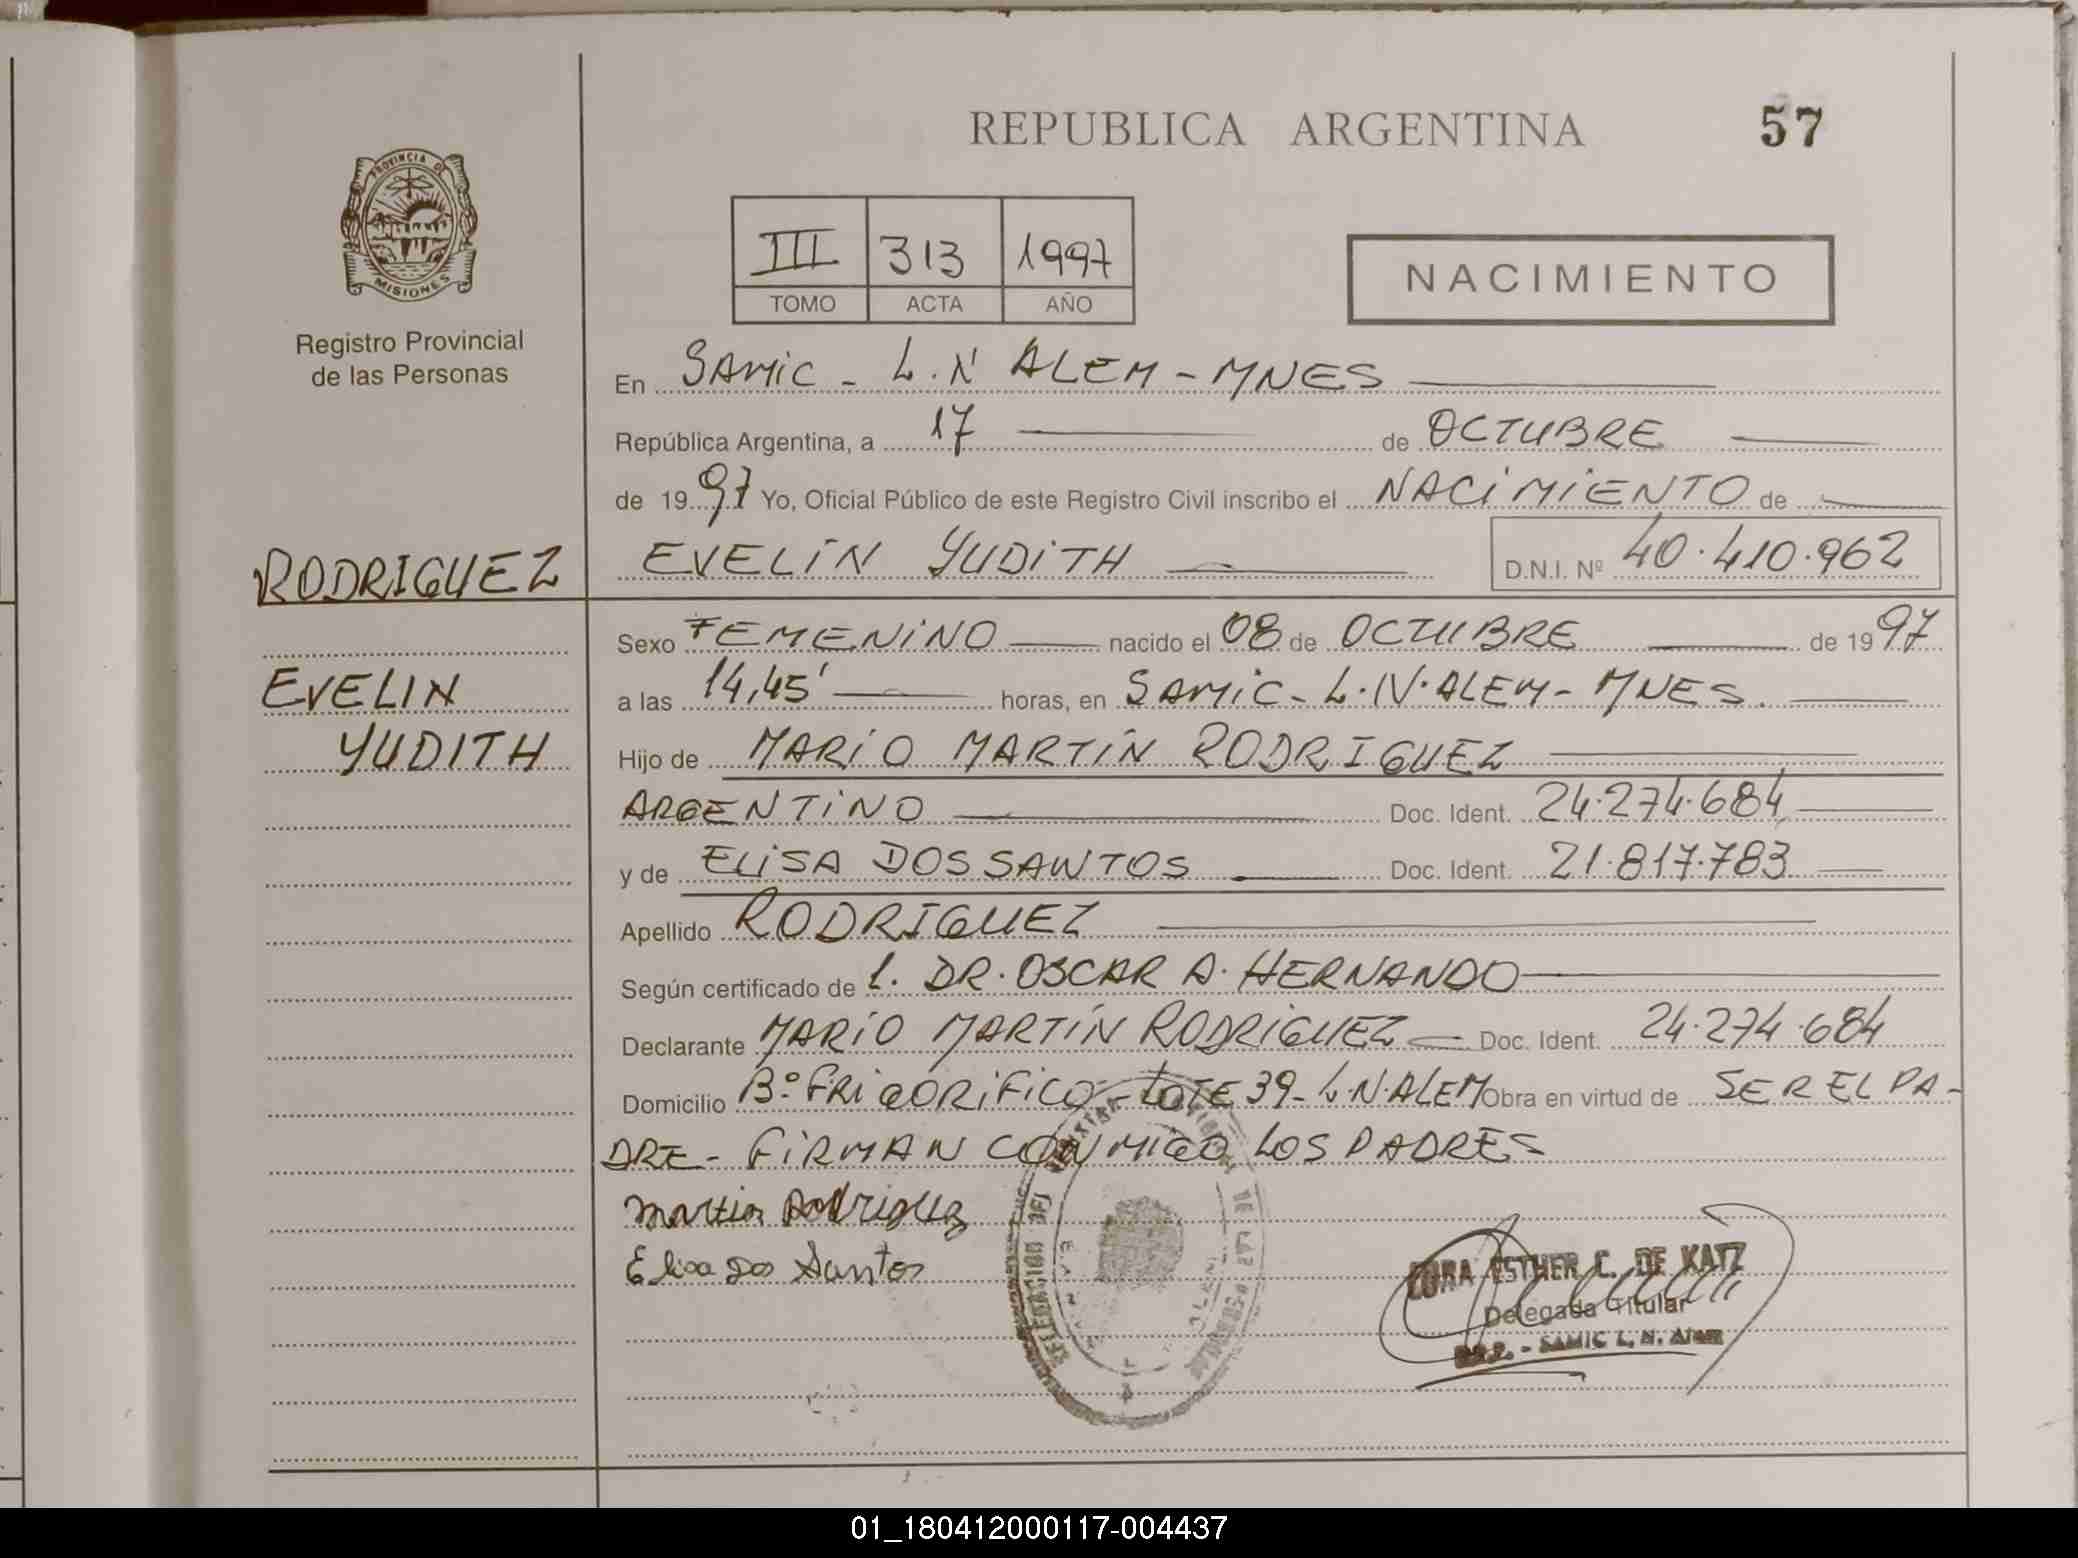 REPUBLICA ARGENTINA
57
PROVINCIA DE
MISIONES
Registro Provincial
de las Personas
III 313 1997
TOMO ACTA AÑO
NACIMIENTO
En SAMIC - L.N ALEM - MNES
República Argentina, a 17 de OCTUBRE
de 1997 Yo, Oficial Público de este Registro Civil inscribo el NACIMIENTO de
RODRIGUEZ
EVELIN YUDITH
D.N.I. Nº 40.410.962
EVELIN
YUDITH
Sexo FEMENINO nacido el 08 de OCTUBRE de 1997
a las 14,45' horas, en SAMIC - L.N. ALEM - MNES.
Hijo de MARIO MARTIN RODRIGUEZ
ARGENTINO Doc. Ident. 24.274.684
y de ELISA DOS SANTOS Doc. Ident. 21.817.783
Apellido RODRIGUEZ
Según certificado de 1. DR. OSCAR A. HERNANDO
Declarante MARIO MARTIN RODRIGUEZ Doc. Ident. 24.274.684
Domicilio Bº FRIGORIFICO - LOTE 39 - L.N. ALEM Obra en virtud de SER EL PA-
DRE - FIRMAN CONMIGO LOS PADRES
Martin Rodriguez
Elisa Dos Santos
ESTHER C. DE KATZ
Delegada Titular
- SAMIC L. N. Alem
DELEGACION DEL
DE LAS PERSONAS
01_180412000117-004437